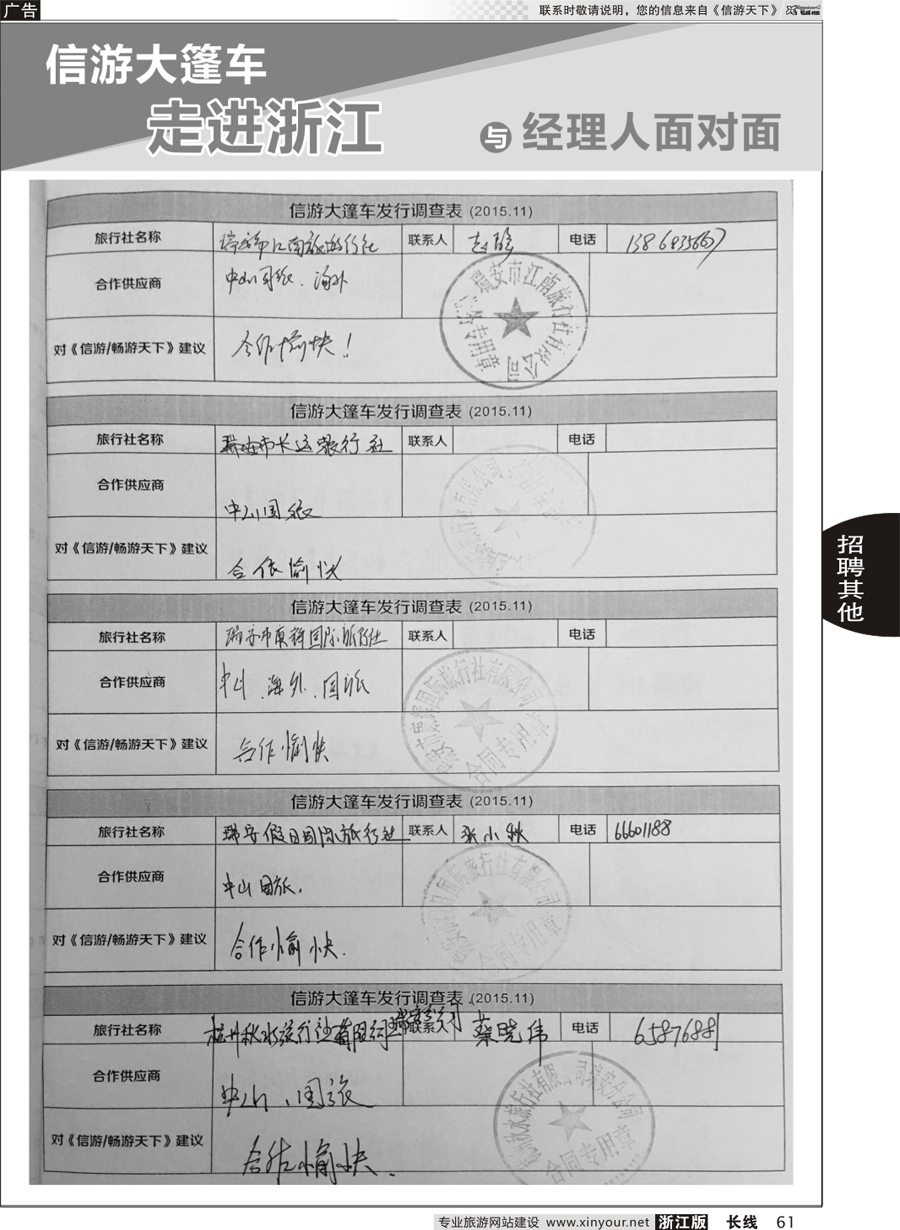 广告
联系时敬请说明，您的信息来自《信游天下》
信游大篷车
走进浙江
与 经理人面对面
信游大篷车发行调查表 (2015.11)
旅行社名称 联系人 电话
合作供应商 中山国旅、海外
对《信游/畅游天下》建议 合作愉快！
瑞安市江南旅行社有限公司
合同专用章
信游大篷车发行调查表 (2015.11)
旅行社名称 瑞安市长运旅行社 联系人 电话
合作供应商 中山国旅
对《信游/畅游天下》建议 合作愉快
信游大篷车发行调查表 (2015.11)
旅行社名称 国际旅行社 联系人 电话
合作供应商 中山、海外、国旅
对《信游/畅游天下》建议 合作愉快
国际旅行社有限公司
合同专用章
信游大篷车发行调查表 (2015.11)
旅行社名称 瑞安假日国际旅行社 联系人 张小秋 电话 66601188
合作供应商 中山国旅.
对《信游/畅游天下》建议 合作愉快.
信游大篷车发行调查表 (2015.11)
旅行社名称 杭州秋水旅行社有限公司瑞安分公司 联系人 蔡晓伟 电话 65876881
合作供应商 中山、国旅
对《信游/畅游天下》建议 合作愉快.
杭州秋水旅行社有限公司瑞安分公司
合同专用章
招聘其他
专业旅游网站建设 www.xinyour.net 浙江版 长线 61